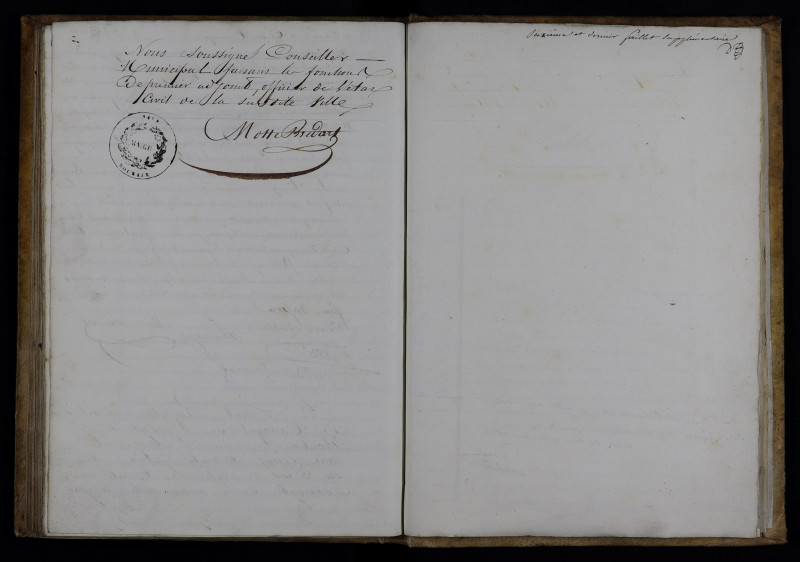 Nous soussigné Conseiller
Municipal faisant les fonctions
De premier adjoint, officier de l'état
Civil de la susdite Ville
Motte Bredart
MAIRIE
ROUBAIX
et dernier feuillet supplémentaire